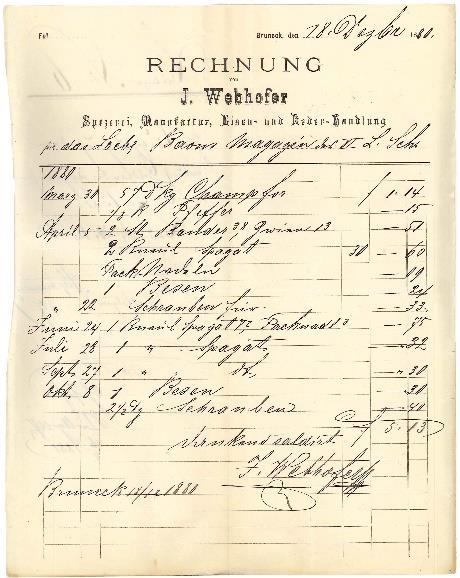 Bruneck, den 18. Dezbr 1880.
RECHNUNG
von
J. Webhofer
Spezerei, Manufaktur, Eisen- und Leder-Handlung
für das Baons Magazin des L. Sch.
1880
März 30 57 Dkg Champfor 1.14
Pfeffer - 15
April 5 2 Bänder 38 Zwirn 13 - 51
2 Kneuil Spagat 30 - 60
Pack Nadeln
1 Besen - 24
" 22 Schrauben für - 33
Juni 24 1 Kneuil Spagat 13
Juli 28 1 " Spagat - 22
Sept 27 1 " do. - 30
Okt. 8 1 Besen - 30
Schrauben - 40
Dankend saldirt
J. Webhofer
Bruneck 18/12 1880